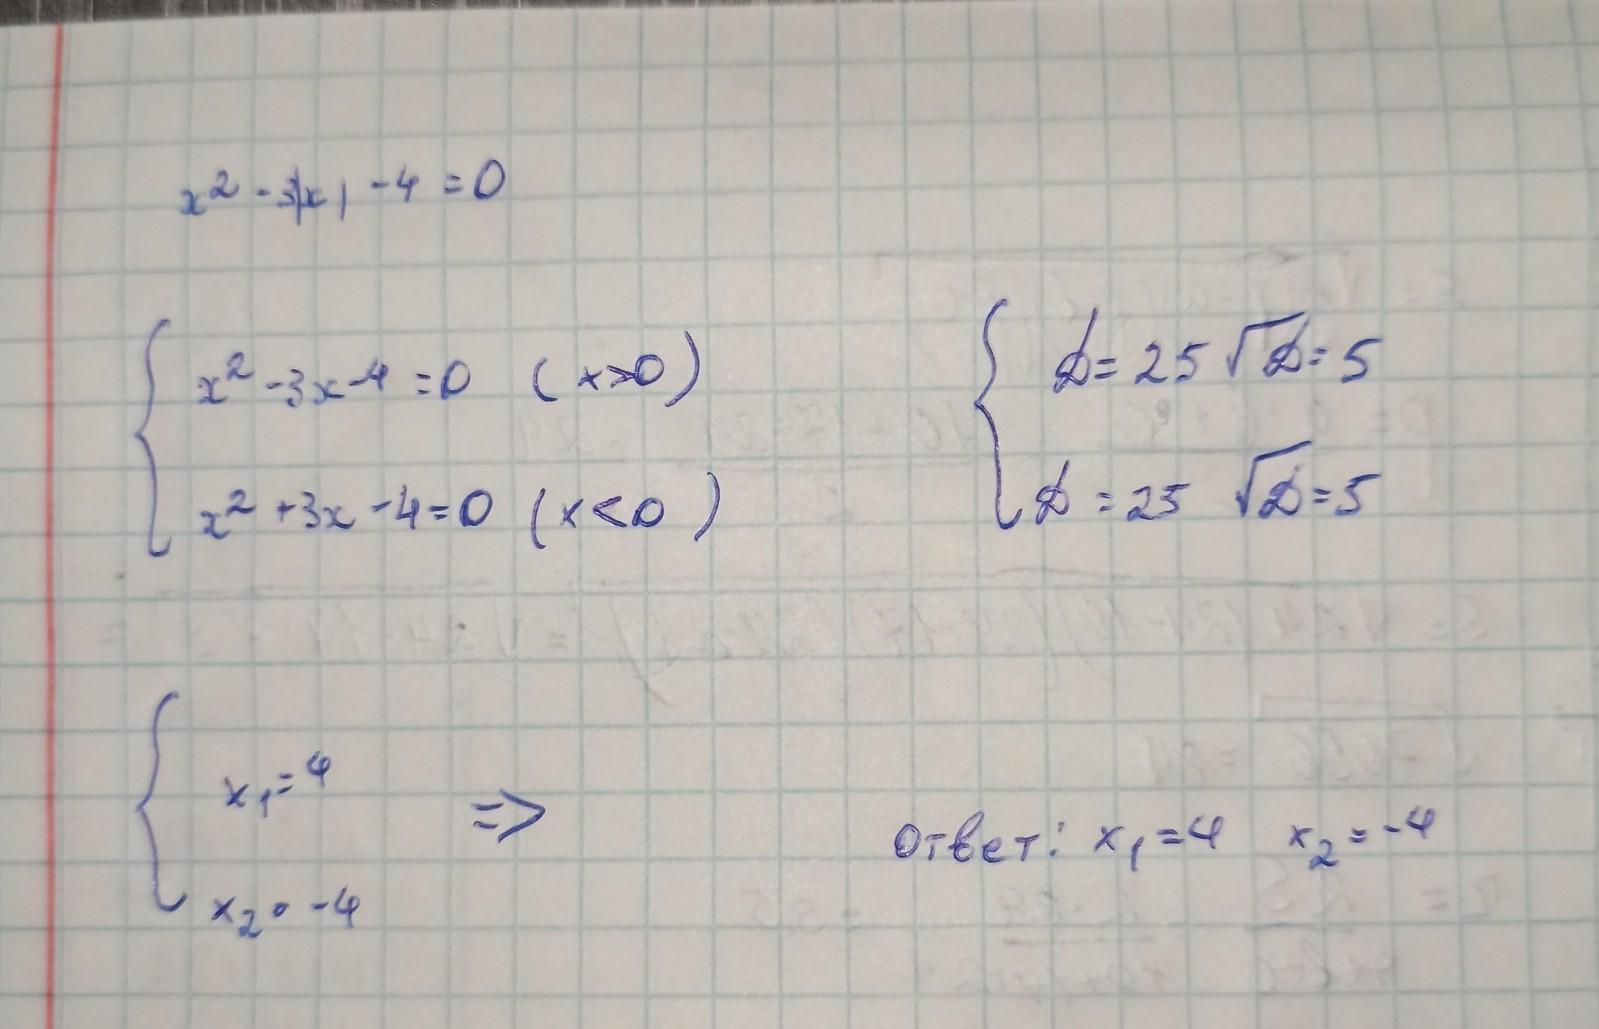 x² - 3|x| - 4 = 0
x² - 3x - 4 = 0 (x>0)
x² + 3x - 4 = 0 (x<0)
D = 25 √D = 5
D = 25 √D = 5
x₁ = 4
x₂ = -4
=>
Ответ: x₁ = 4 x₂ = -4